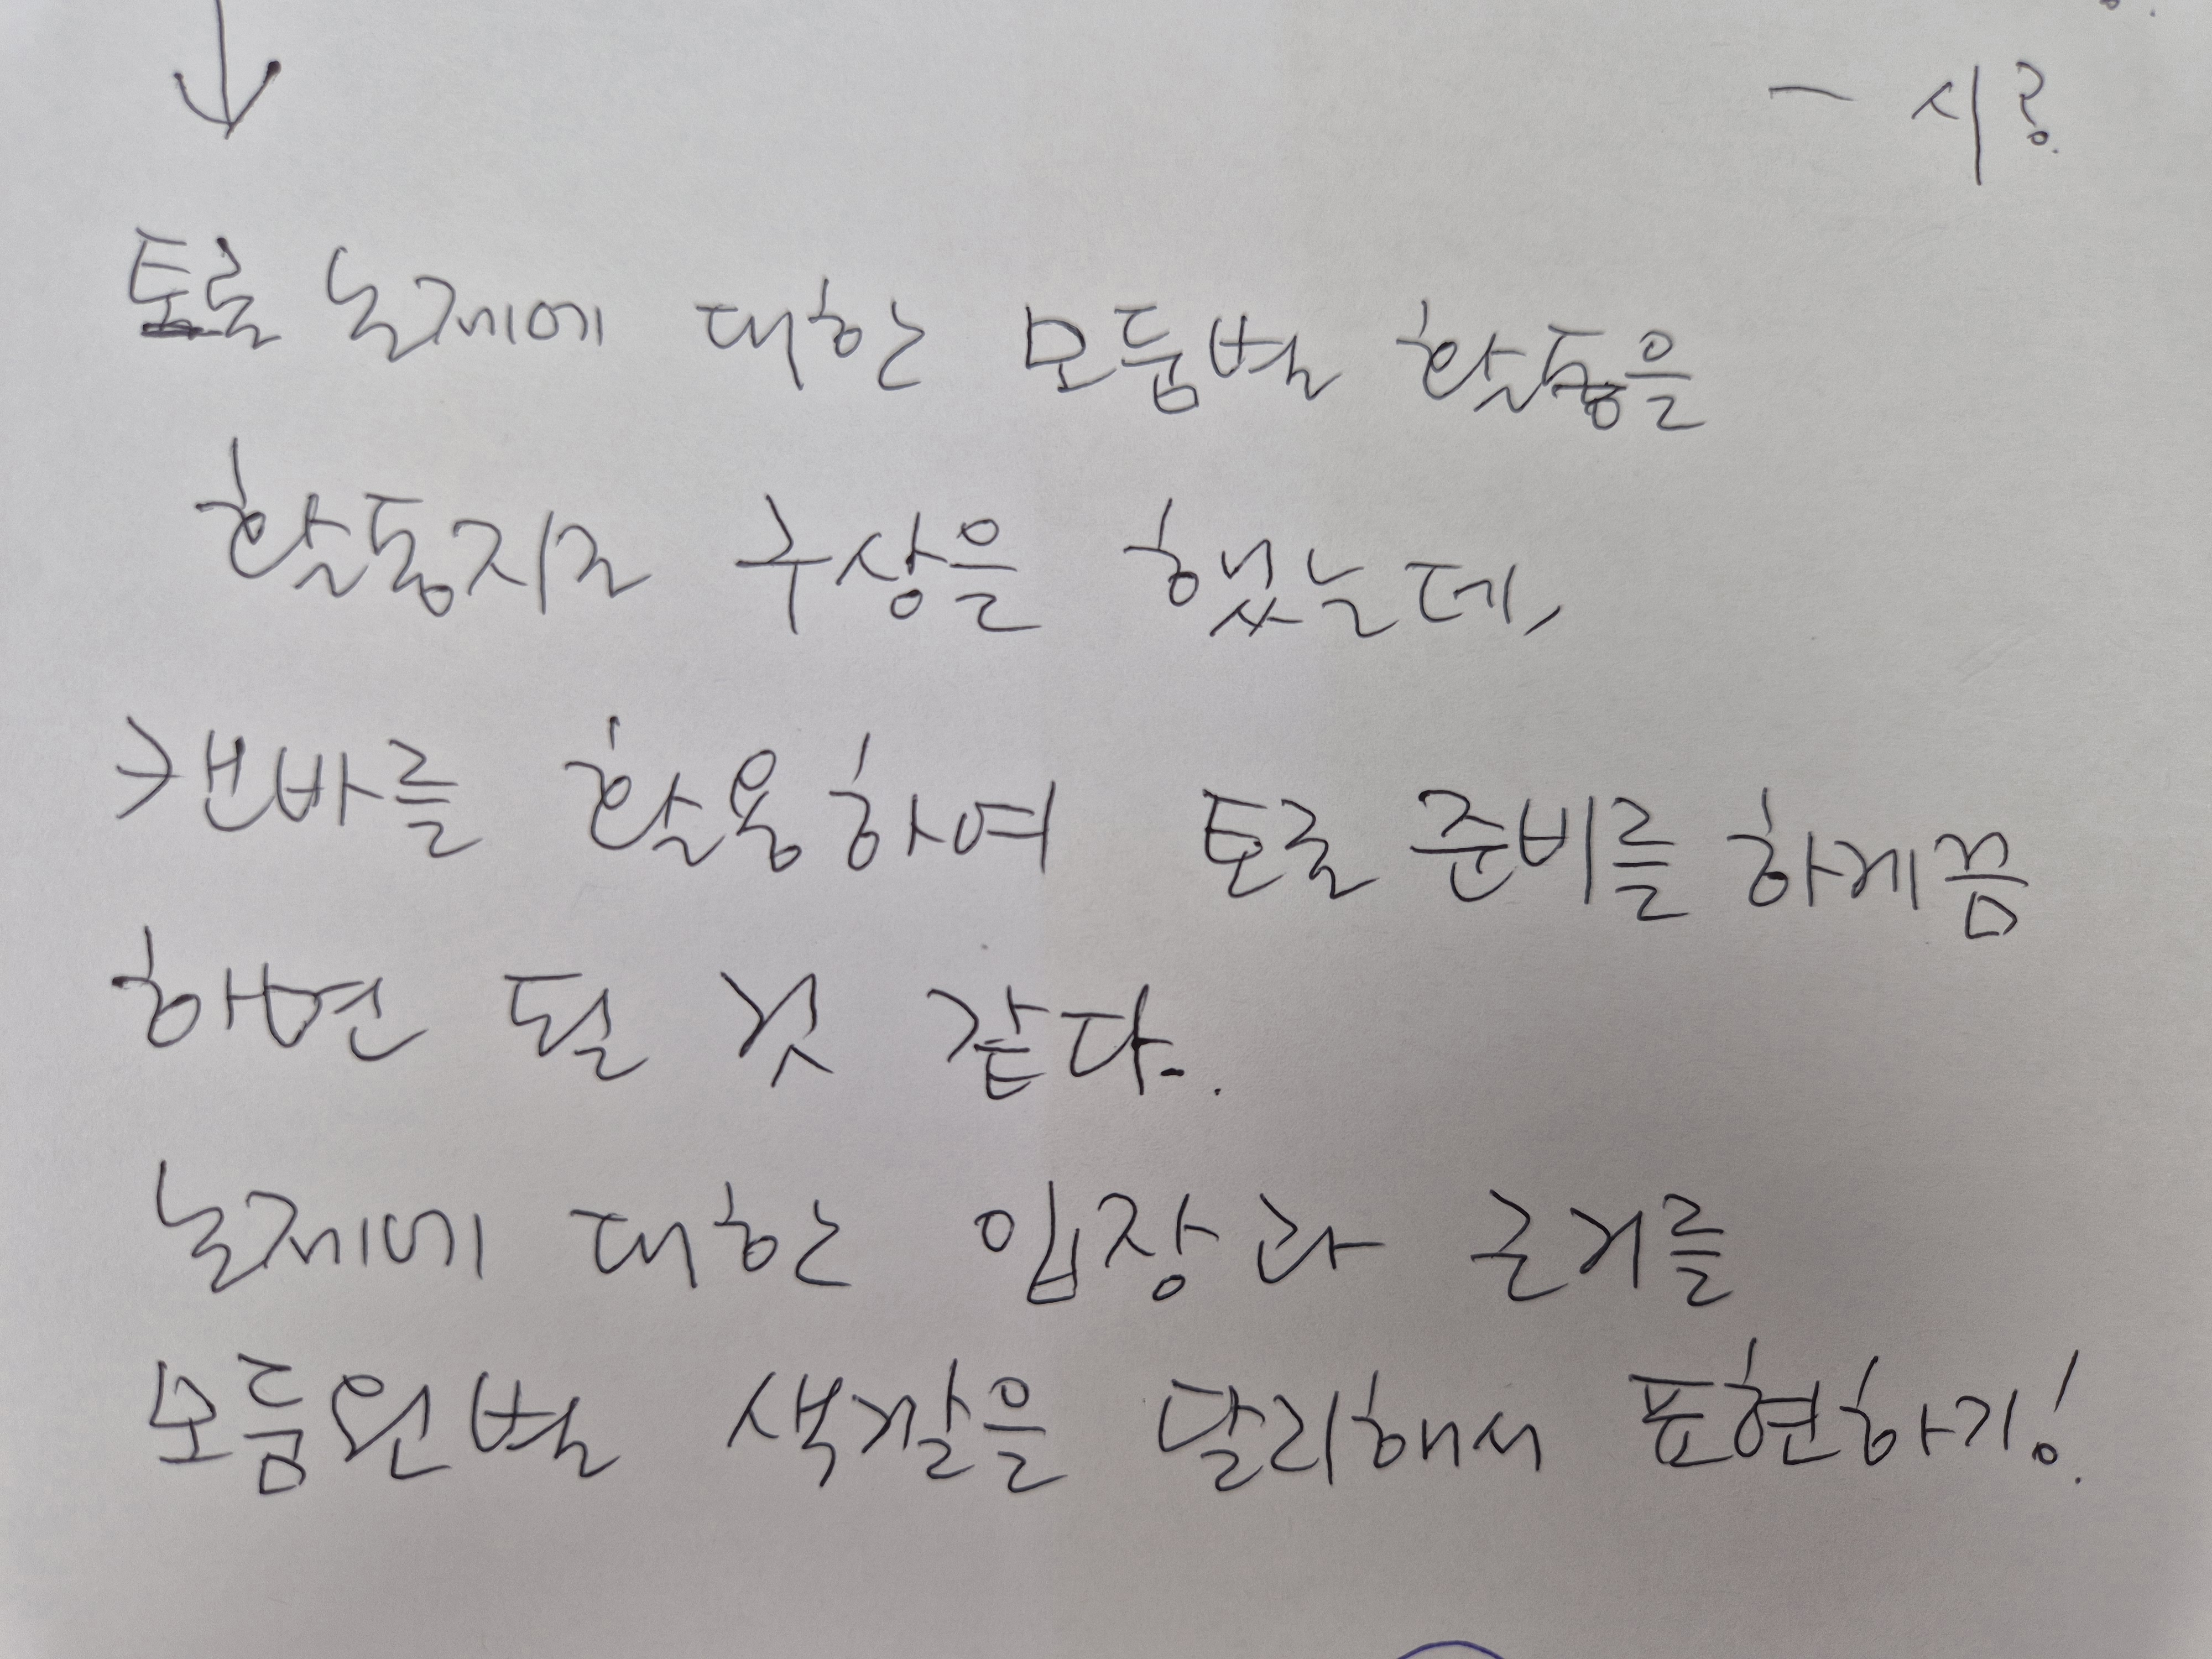 ㅡ 시?
토론 논제에 대한 모둠별 활동을
활동지로 구상을 했는데,
캔바를 활용하여 토론 준비를 하게끔
하면 될 것 같다.
논제에 대한 입장과 근거를
모둠원별 색깔을 달리해서 표현하기!